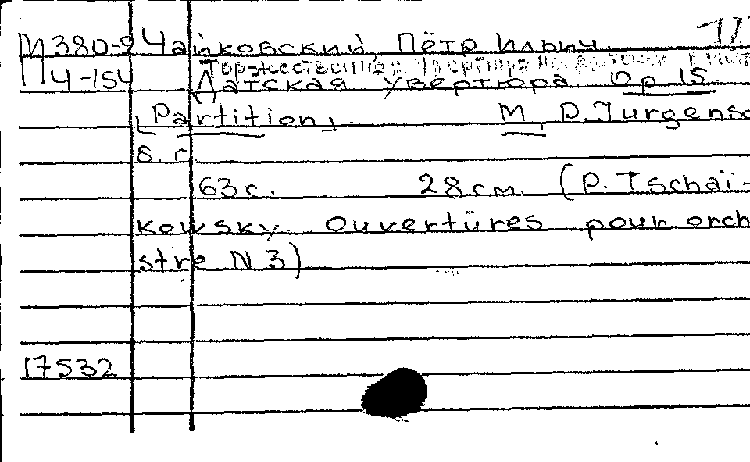 М380-2 Чайковский Пётр Ильич 17
Торжественная увертюра на
П4-154 Датская увертюра Op 15
[Partition] М, P. Jurgenso
б. г
63с. 28см. (P. Tschaï-
kowsky Ouvertüres pour orch
stre N 3)
17532